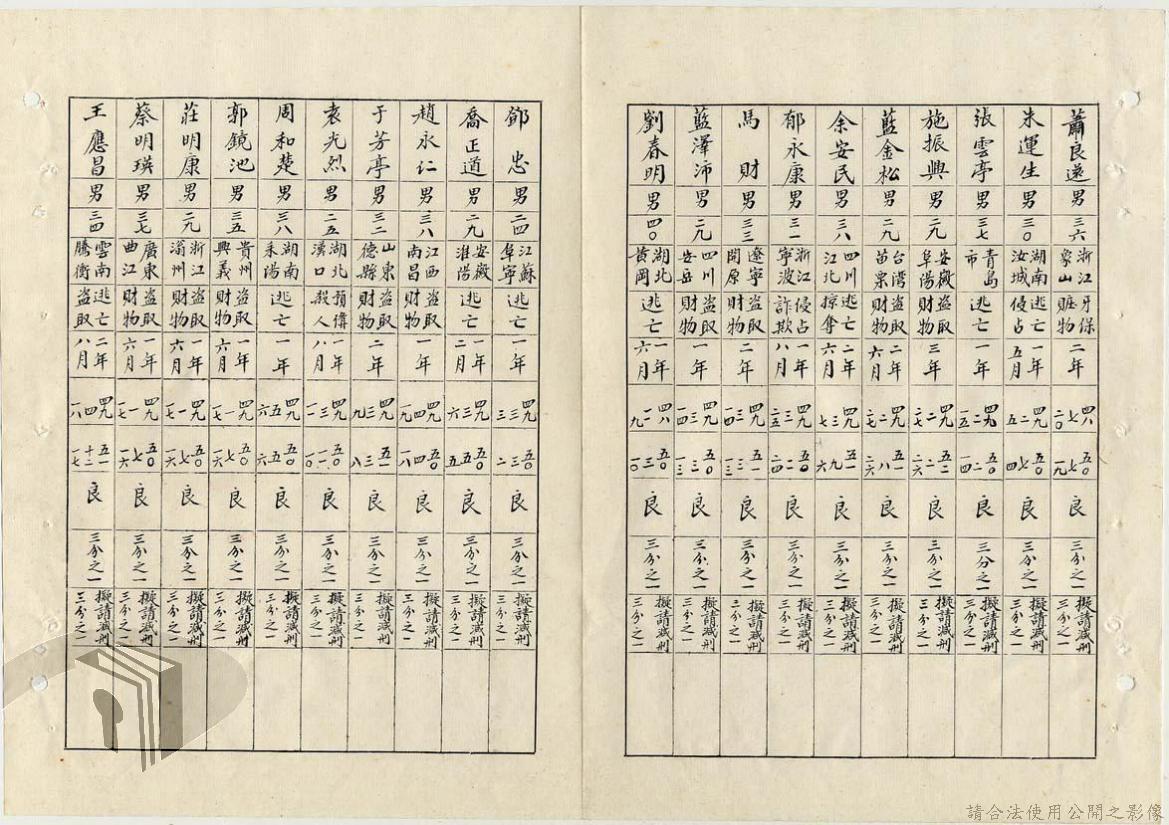 蕭良選 男 三六 浙江象山 牙保贓物 二年 四八 七 二〇 五〇 七 一九 良 三分之一 擬請減刑三分之一
朱運生 男 三〇 湖南汝城 逃亡侵占 一年五月 四九 二 五 五〇 七 四 良 三分之一 擬請減刑三分之一
張雲亭 男 三七 青島市 逃亡 一年 四九 二 一五 五〇 二 一四 良 三分之一 擬請減刑三分之一
施振興 男 二九 安徽阜陽 盜取財物 三年 四九 二 二七 五二 二 二六 良 三分之一 擬請減刑三分之一
藍金松 男 二九 台灣苗栗 盜取財物 二年六月 四九 二 二七 五一 八 二六 良 三分之一 擬請減刑三分之一
余安民 男 三八 四川江北 逃亡掠奪 二年六月 四九 三 七 五一 九 六 良 三分之一 擬請減刑三分之一
郁永康 男 三一 浙江寧波 侵占詐欺 一年八月 四九 三 二五 五〇 二 二四 良 三分之一 擬請減刑三分之一
馬財 男 三三 遼寧開原 盜取財物 二年 四九 三 一四 五一 三 一三 良 三分之一 擬請減刑三分之一
藍澤沛 男 二九 四川安岳 盜取財物 一年 四九 三 一四 五〇 三 一三 良 三分之一 擬請減刑三分之一
劉春明 男 四〇 湖北黃岡 逃亡 一年六月 四八 一一 九 五〇 三 一〇 良 三分之一 擬請減刑三分之一
鄧忠 男 二四 江蘇阜寧 逃亡 一年 四九 三 三 五〇 三 二 良 三分之一 擬請減刑三分之一
喬正道 男 二九 安徽淮陽 逃亡 一年二月 四九 三 六 五〇 五 五 良 三分之一 擬請減刑三分之一
趙永仁 男 三八 江西南昌 盜取財物 一年 四九 四 一九 五〇 四 一八 良 三分之一 擬請減刑三分之一
于芳亭 男 三二 山東德縣 盜取財物 二年 四九 三 九 五一 三 八 良 三分之一 擬請減刑三分之一
袁光烈 男 二五 湖北漢口 預備殺人 一年八月 四九 三 一一 五〇 一一 一〇 良 三分之一 擬請減刑三分之一
周和楚 男 三八 湖南耒陽 逃亡 一年 四九 五 六 五〇 五 五 良 三分之一 擬請減刑三分之一
郭鏡池 男 三五 貴州興義 盜取財物 一年六月 四九 一 一七 五〇 七 一六 良 三分之一 擬請減刑三分之一
莊明康 男 二九 浙江溫州 盜取財物 一年六月 四九 一 一七 五〇 七 一六 良 三分之一 擬請減刑三分之一
蔡明瑛 男 三七 廣東曲江 盜取財物 一年六月 四九 一 一七 五〇 七 一六 良 三分之一 擬請減刑三分之一
王應昌 男 三四 雲南騰衝 逃亡盜取 二年八月 四九 四 一八 五一 十二 一七 良 三分之一 擬請減刑三分之一
請合法使用公開之影像